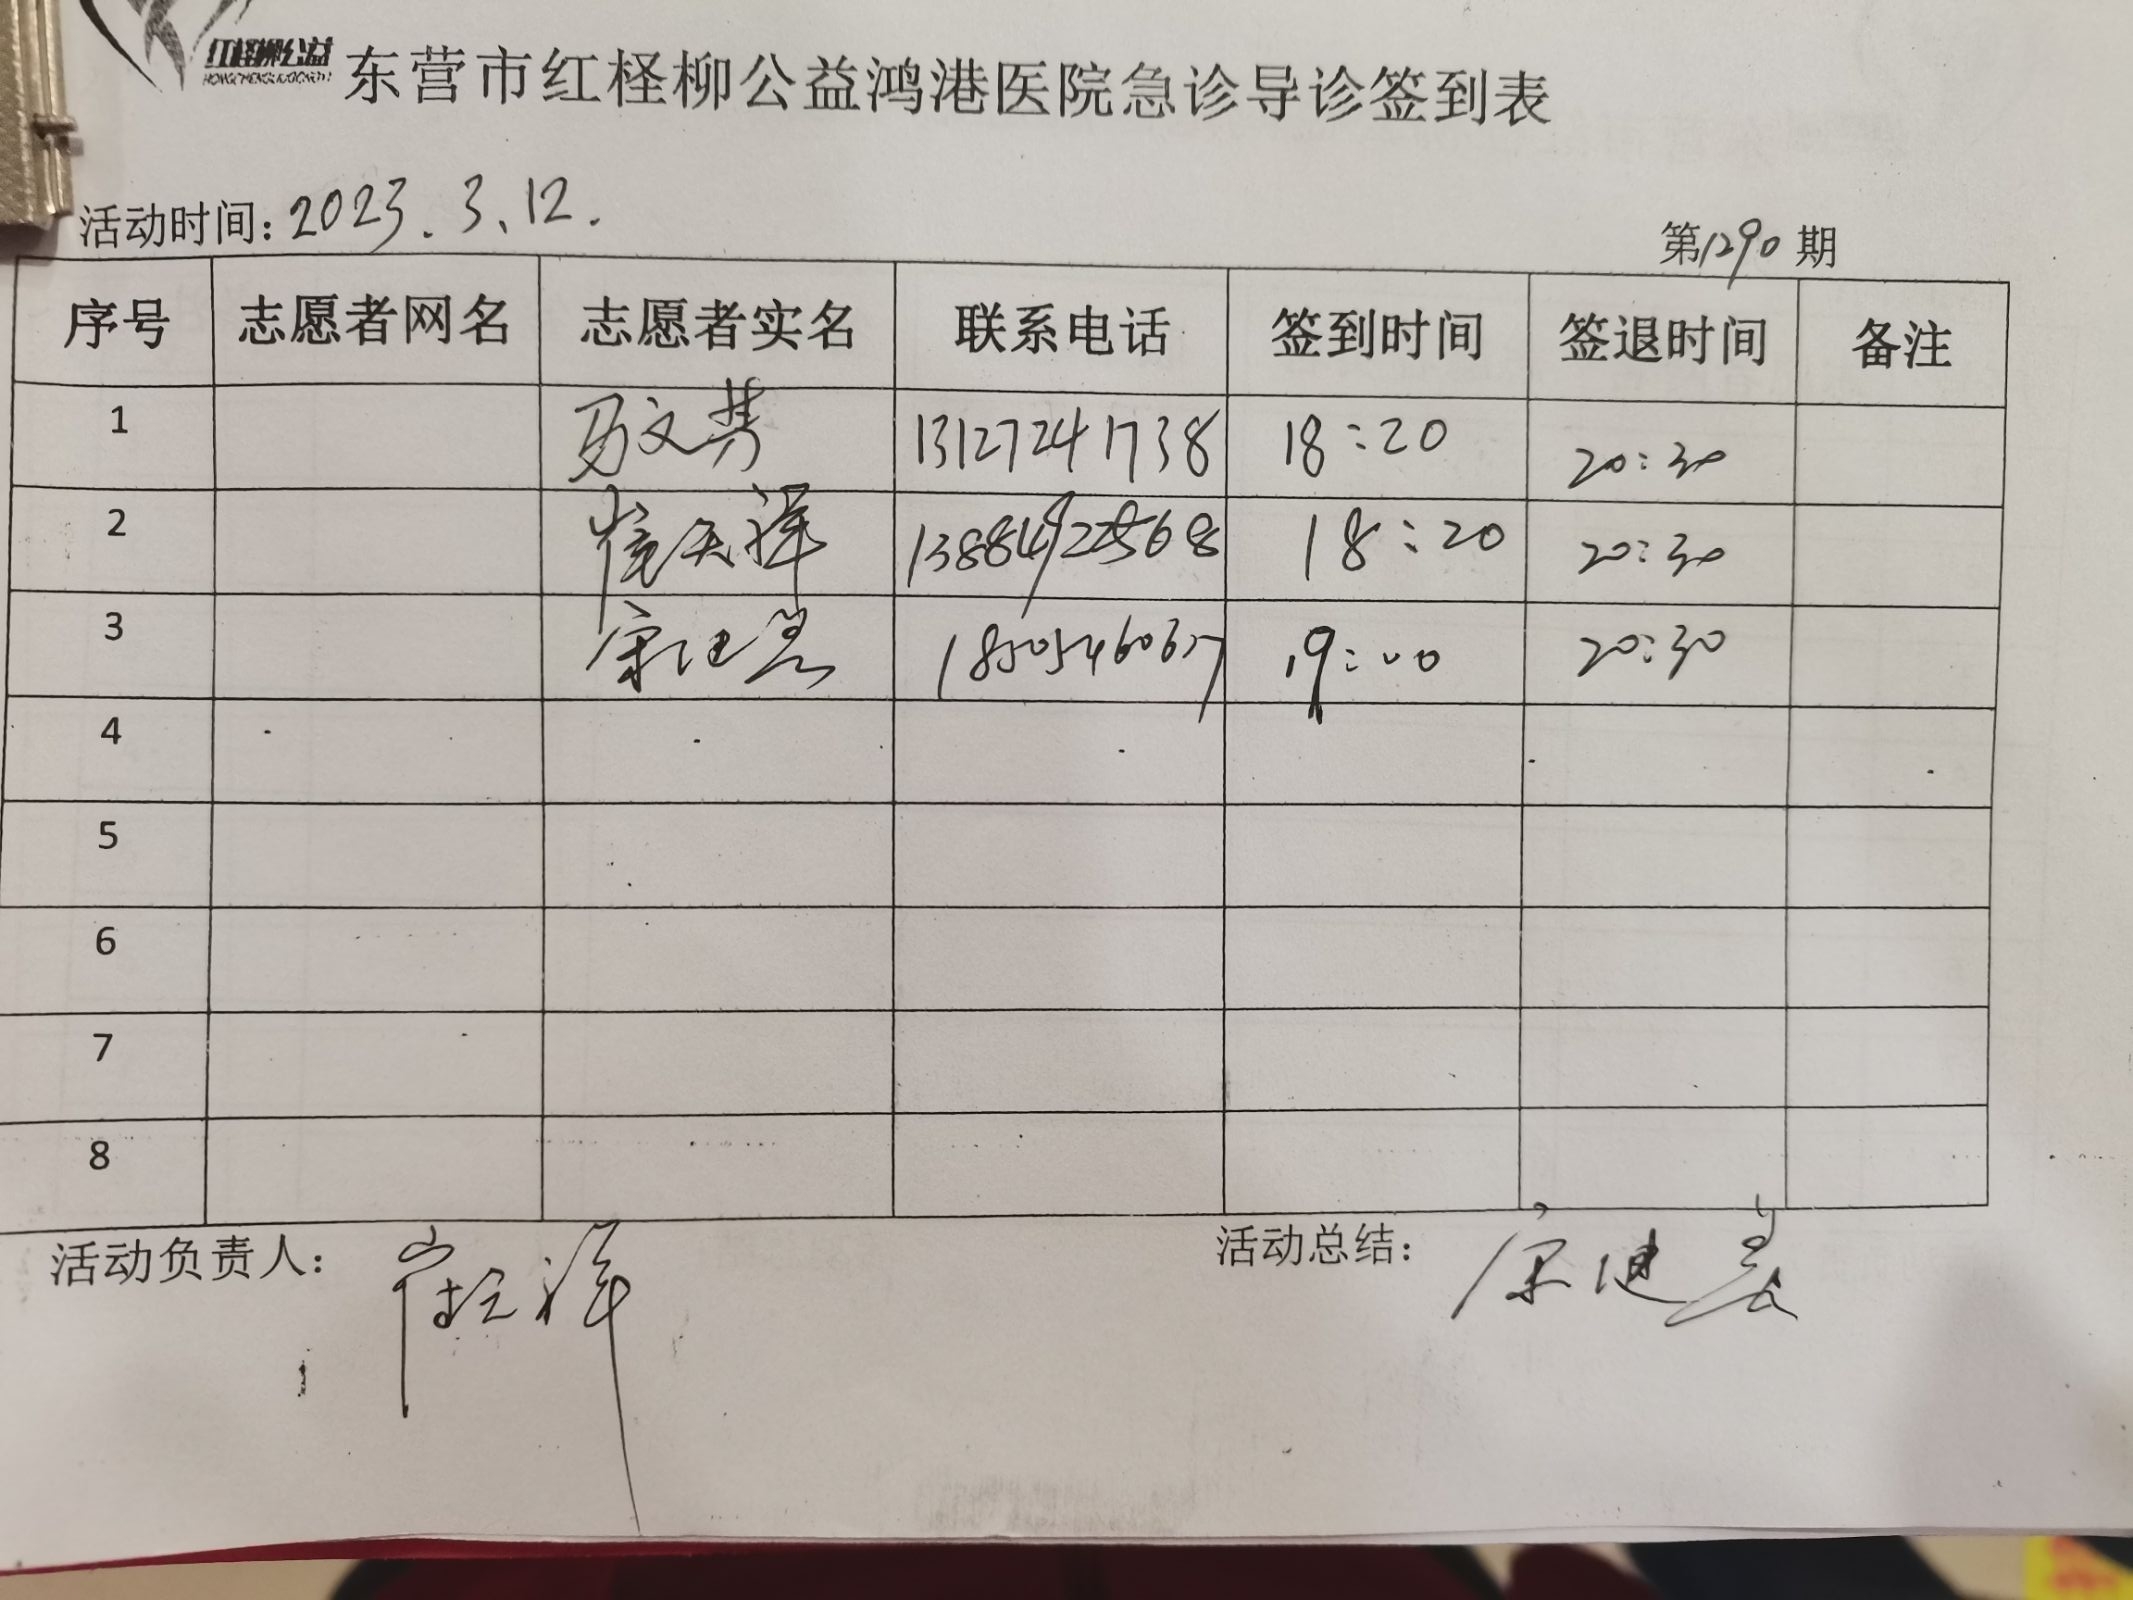 红柽柳公益
东营市红柽柳公益鸿港医院急诊导诊签到表
活动时间：2023.3.12.
第1290期
序号 志愿者网名 志愿者实名 联系电话 签到时间 签退时间 备注
1 马文芳 13127241738 18:20 20:30
2 13884922568 18:20 20:30
3 18505460657 19:00 20:30
4
5
6
7
8
活动负责人： 活动总结：